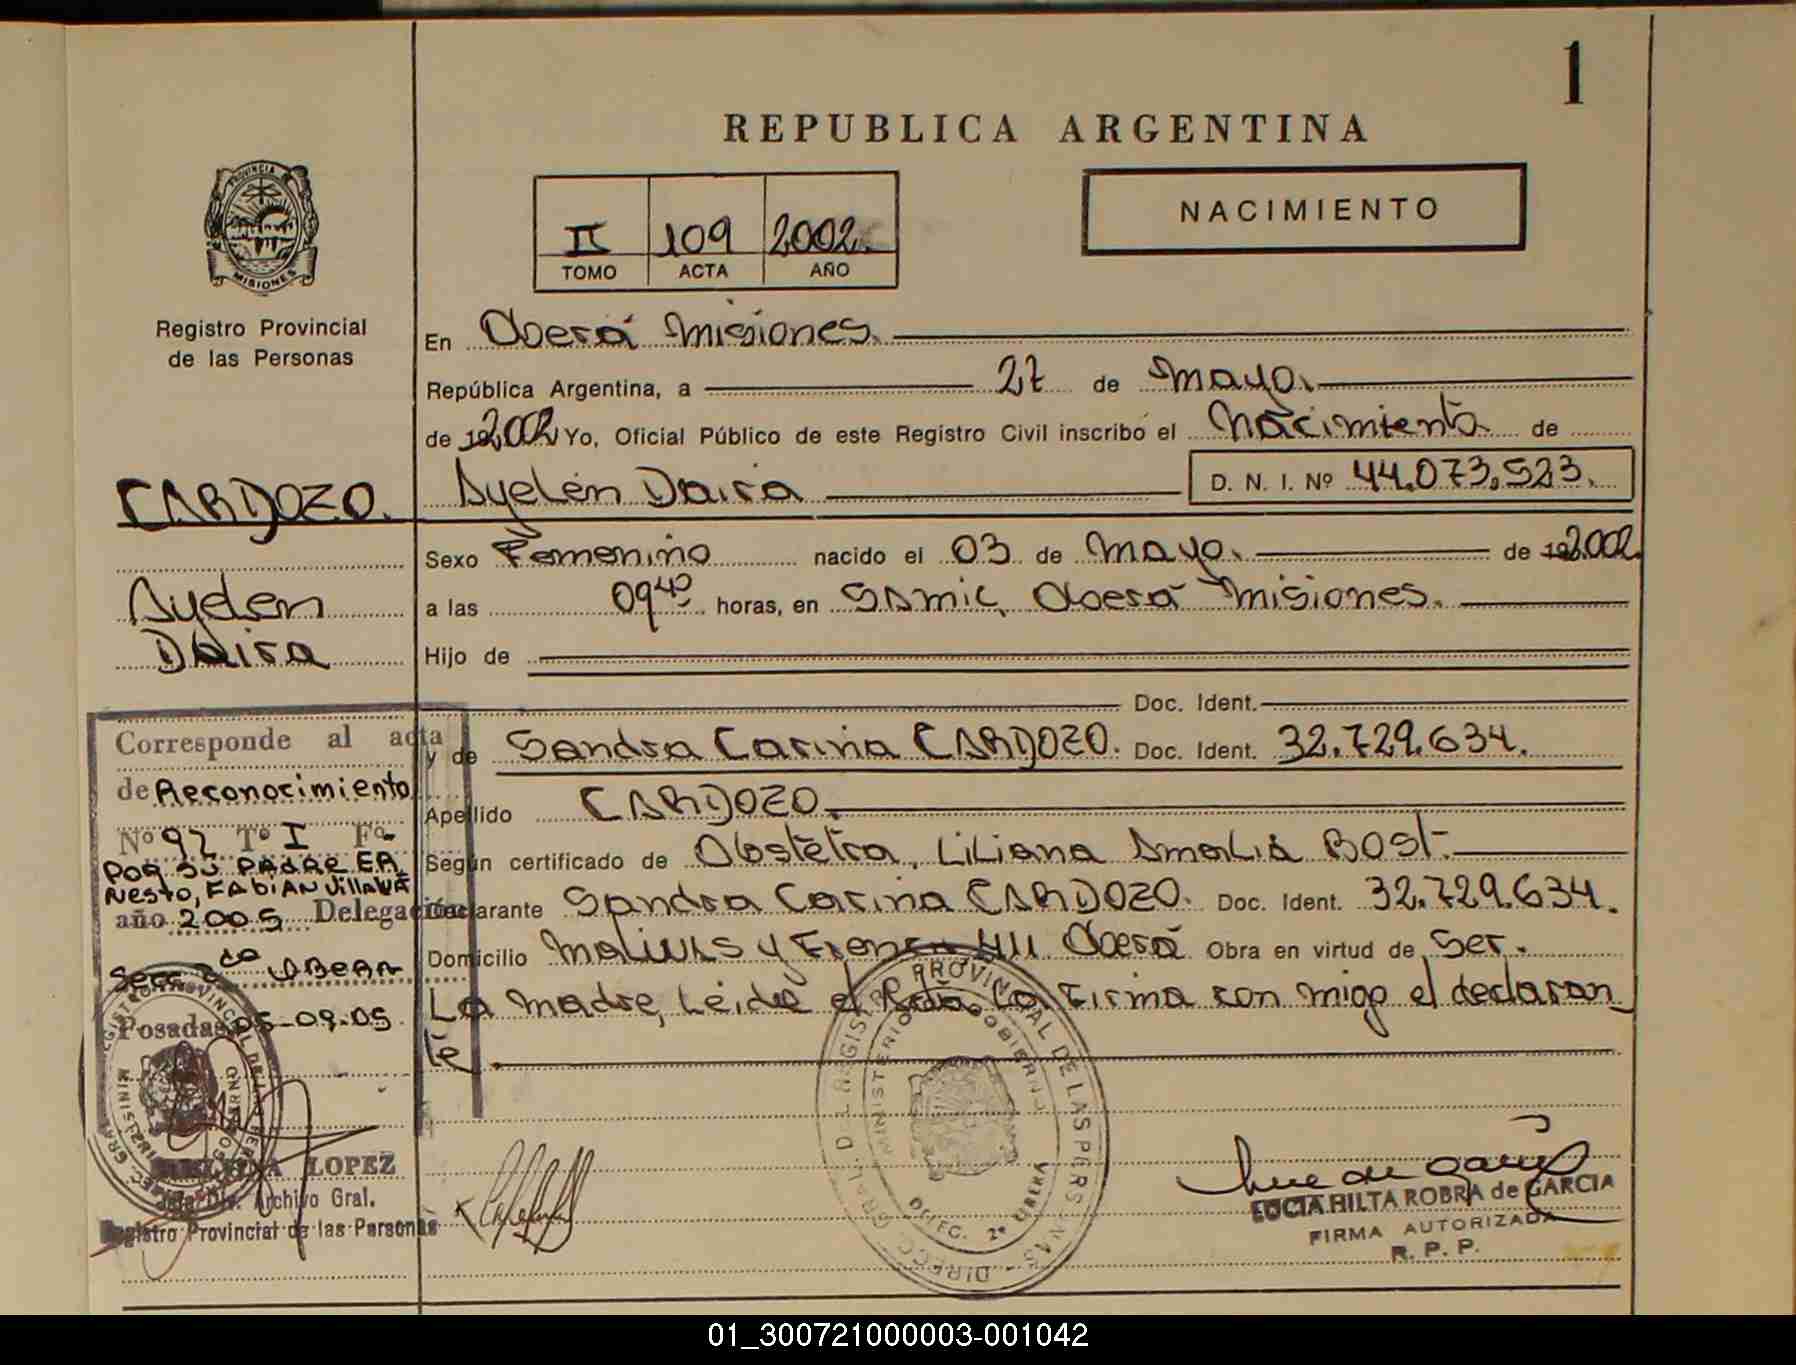 1
REPUBLICA ARGENTINA
PROVINCIA DE
MISIONES
Registro Provincial
de las Personas
II 109 2002.
TOMO ACTA AÑO
NACIMIENTO
En Oberá Misiones.
República Argentina, a 27 de Mayo.
de 192002 Yo, Oficial Público de este Registro Civil inscribo el Nacimiento de
CARDOZO. Ayelén Daira D. N. I. Nº 44.073.523.
Sexo Femenino nacido el 03 de Mayo. de 192.002.
Ayelen
Daira
a las 09 40 horas, en SAMIC, Oberá Misiones.
Hijo de
Doc. Ident.
y de Sandra Carina CARDOZO. Doc. Ident. 32.729.634.
Apellido CARDOZO.
Según certificado de Obstetra, Liliana Amalia Bost.
Declarante Sandra Carina CARDOZO. Doc. Ident. 32.729.634.
Domicilio 411 Oberá Obra en virtud de Ser.
La madre, Leída el Acta La Firma con migo el declaran
te.
Corresponde al acta
de Reconocimiento
Nº 92 Tº I Fº -
Por su Padre ER
Nesto, FABIAN Villalva
año 2005 Delegación
Secc 2da OBERA
Posadas 05-09-05
LOPEZ
Jefa Div. Archivo Gral.
Registro Provincial de las Personas
DIREC. GRAL. DEL REGISTRO PROVINCIAL DE LAS PERSONAS
MINISTERIO DE GOBIERNO
DELEG. 2ª OBERA
LUCIA HILTA ROBRA de GARCIA
FIRMA AUTORIZADA
R. P. P.
01_300721000003-001042